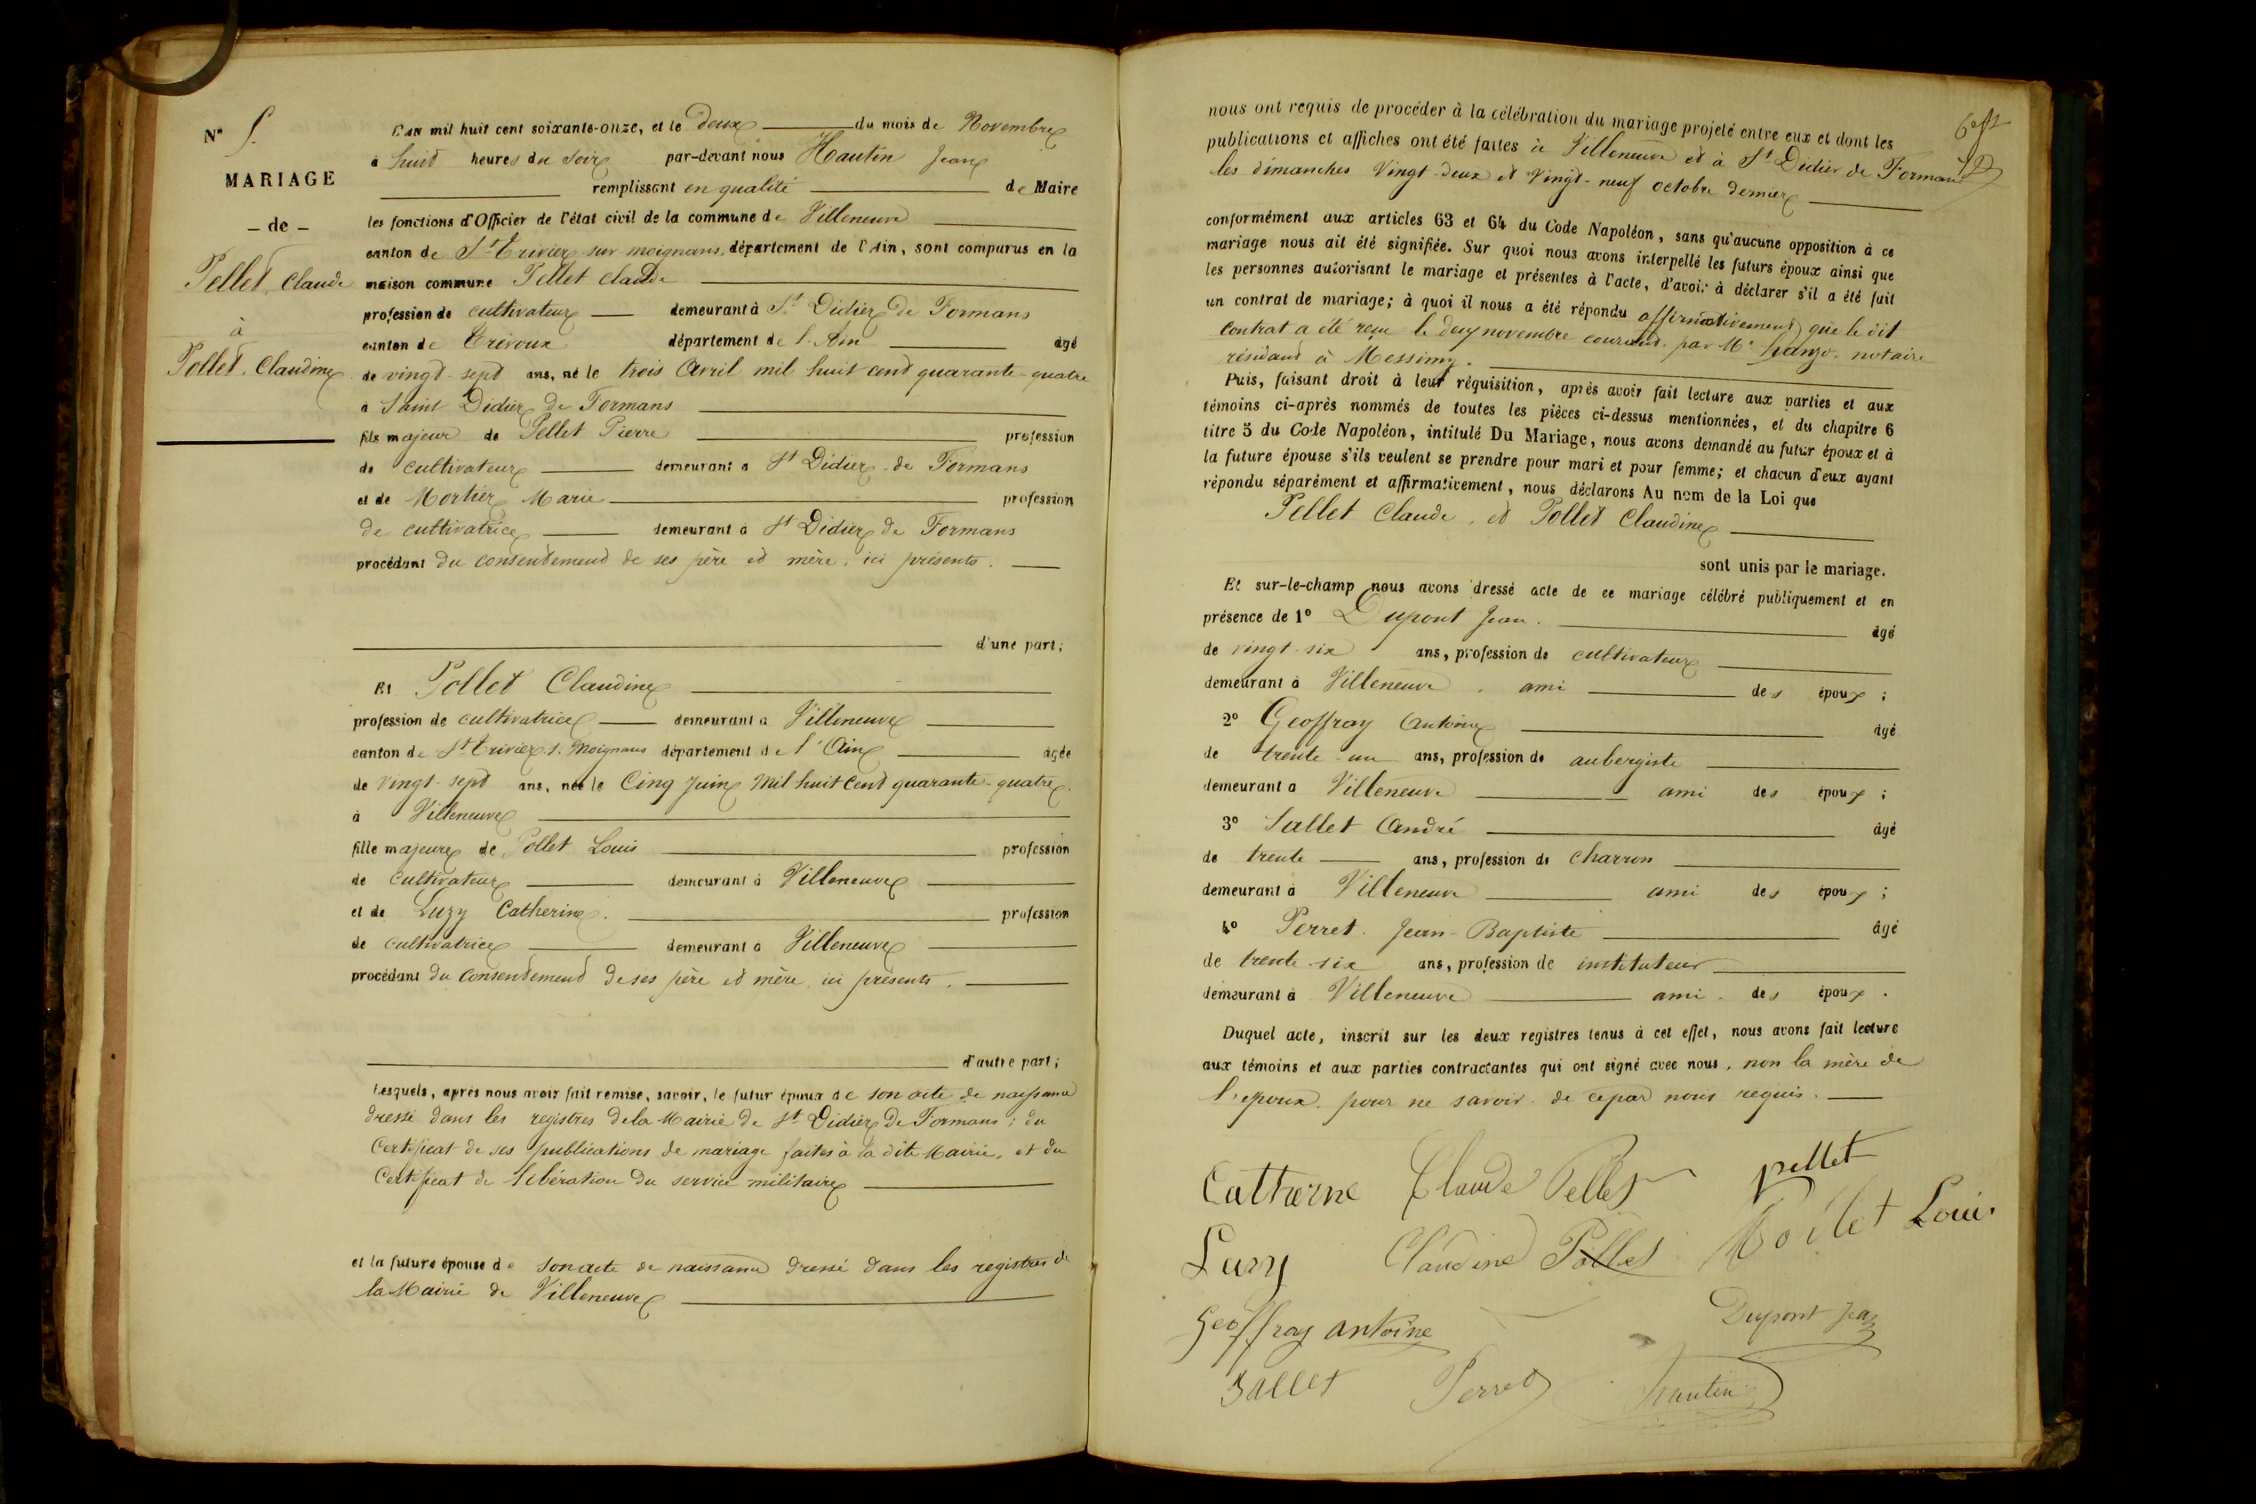 N° 5.
MARIAGE
— de —
Pellet Claude
à
Pollet Claudine
L'AN mil huit cent soixante-onze, et le Deux du mois de Novembre
à huit heures du soir par-devant nous Hautin Jean
remplissant en qualité de Maire
les fonctions d'Officier de l'état civil de la commune de Villeneuve
canton de St Trivier sur moignans, département de l'Ain, sont comparus en la
maison commune Pellet Claude
profession de cultivateur demeurant à St Didier de Formans
canton de Trévoux département de l'Ain âgé
de vingt-sept ans, né le trois Avril mil huit cent quarante-quatre
à Saint Didier de Formans
fils majeur de Pellet Pierre profession
de cultivateur demeurant à St Didier de Formans
et de Mortier Marie profession
de cultivatrice demeurant à St Didier de Formans
procédant du consentement de ses père et mère, ici présents.
d'une part;
Et Pollet Claudine
profession de cultivatrice demeurant à Villeneuve
canton de St Trivier s. Moignans département de l'Ain âgée
de vingt-sept ans, née le Cinq Juin Mil huit Cent quarante-quatre
à Villeneuve
fille majeure de Pollet Louis profession
de cultivateur demeurant à Villeneuve
et de Luzy Catherine. profession
de cultivatrice demeurant à Villeneuve
procédant du consentement de ses père et mère, ici présents.
d'autre part;
Lesquels, après nous avoir fait remise, savoir, le futur époux de son acte de naissance
dressé dans les registres de la Mairie de St Didier de Formans; du
Certificat de ses publications de mariage faites à la dite Mairie, et du
Certificat de libération du service militaire
et la future épouse de son acte de naissance dressé dans les registres de
la Mairie de Villeneuve
nous ont requis de procéder à la célébration du mariage projeté entre eux et dont les
publications et affiches ont été faites à Villeneuve et à St Didier de Formans
les dimanches Vingt-deux et Vingt-neuf octobre dernier
conformément aux articles 63 et 64 du Code Napoléon, sans qu'aucune opposition à ce
mariage nous ait été signifiée. Sur quoi nous avons interpellé les futurs époux ainsi que
les personnes autorisant le mariage et présentes à l'acte, d'avoir à déclarer s'il a été fait
un contrat de mariage; à quoi il nous a été répondu affirmativement que le dit
Contrat a été reçu le deux novembre courant par Me notaire
résidant à Messimy.
Puis, faisant droit à leur réquisition, après avoir fait lecture aux parties et aux
témoins ci-après nommés de toutes les pièces ci-dessus mentionnées, et du chapitre 6
titre 5 du Code Napoléon, intitulé Du Mariage, nous avons demandé au futur époux et à
la future épouse s'ils veulent se prendre pour mari et pour femme; et chacun d'eux ayant
répondu séparément et affirmativement, nous déclarons Au nom de la Loi que
Pellet Claude, et Pollet Claudine
sont unis par le mariage.
Et sur-le-champ nous avons dressé acte de ce mariage célébré publiquement et en
présence de 1° Dupont Jean. âgé
de vingt-six ans, profession de cultivateur
demeurant à Villeneuve, ami des époux;
2° Geoffray Antoine âgé
de trente-un ans, profession de aubergiste
demeurant à Villeneuve ami des époux;
3° Sallet André âgé
de trente ans, profession de charron
demeurant à Villeneuve ami des époux;
4° Perret Jean-Baptiste âgé
de trente-six ans, profession de instituteur
demeurant à Villeneuve ami des époux.
Duquel acte, inscrit sur les deux registres tenus à cet effet, nous avons fait lecture
aux témoins et aux parties contractantes qui ont signé avec nous, non la mère de
l'époux, pour ne savoir de ce par nous requis.
Catherne Claude Pellet pellet
Luzy Claudine Pollet Pollet Louis
Geoffray antoine Dupont Jean
Sallet Perret Hautin